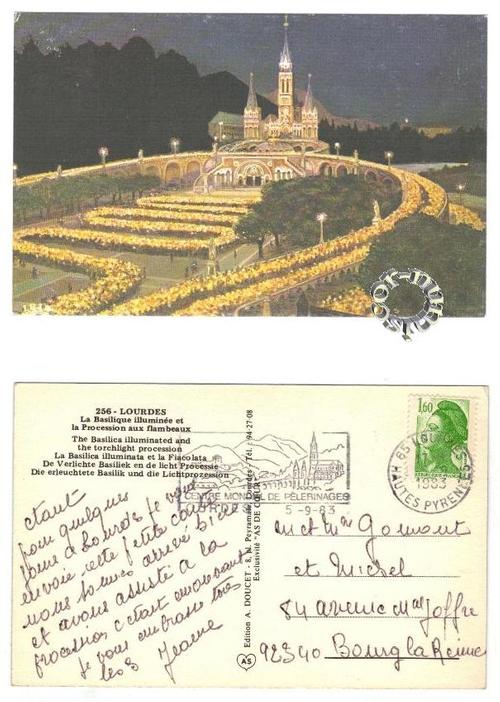 256 - LOURDES
La Basilique illuminée et
la Procession aux flambeaux
The Basilica illuminated and
the torchlight procession
La Basilica illuminata et la Fiacolata
De Verlichte Basiliek en de licht Processie
Die erleuchtete Basilik und die Lichtprozession
étant
pour quelques
jours à Lourdes je vous
envoie cette petite carte
nous sommes arrivé bien
et avons assisté a la
procession c'était émouvant
je vous embrasse tous
les 3 Jeanne
Edition A. DOUCET - 8, Pl. Peyramale, Lourdes - Tél. 94-27-08
Exclusivité "AS DE CŒUR"
AS
CENTRE MONDIAL DE PÈLERINAGES
LOURDES 5-9-83
1,60
65 LOURDES
1983
HAUTES PYRENEES
Mr et Mme Gomont
et Michel
84 avenue Mal Joffre
92340 Bourg la Reine